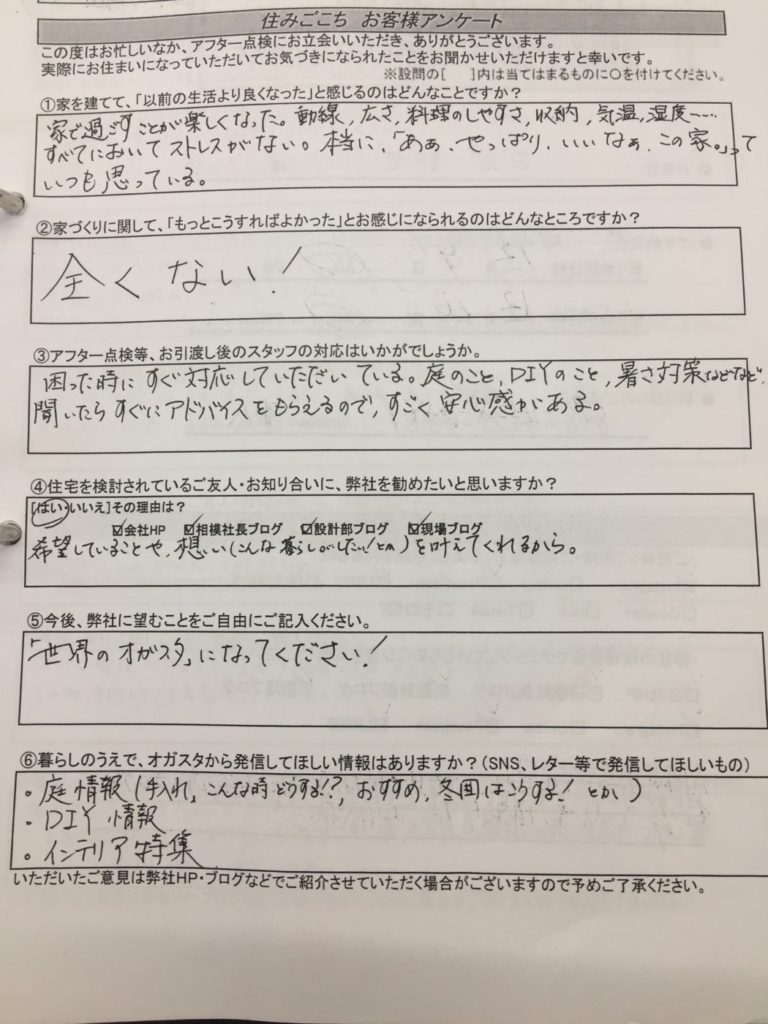 住みごこち お客様アンケート
この度はお忙しいなか、アフター点検にお立会いいただき、ありがとうございます。
実際にお住まいになっていただいてお気づきになられたことをお聞かせいただけますと幸いです。
※設問の[ ]内は当てはまるものに○を付けてください。
①家を建てて、「以前の生活より良くなった」と感じるのはどんなことですか？
家で過ごすことが楽しくなった。動線、広さ、料理のしやすさ、収納、気温、湿度……
すべてにおいてストレスがない。本当に、「あぁ、やっぱり、いいなぁ、この家。」って
いつも思っている。
②家づくりに関して、「もっとこうすればよかった」とお感じになられるのはどんなところですか？
全くない！
③アフター点検等、お引渡し後のスタッフの対応はいかがでしょうか。
困った時にすぐ対応していただいている。庭のこと、DIYのこと、暑さ対策などなど、
聞いたらすぐにアドバイスをもらえるので、すごく安心感がある。
④住宅を検討されているご友人・お知り合いに、弊社を勧めたいと思いますか？
[はい・いいえ]その理由は？
☑会社HP ☑相模社長ブログ ☑設計部ブログ ☑現場ブログ
希望していることや、想い（こんな暮らしがしたい！とか）を叶えてくれるから。
⑤今後、弊社に望むことをご自由にご記入ください。
「世界のオガスタ」になってください！
⑥暮らしのうえで、オガスタから発信してほしい情報はありますか？（SNS、レター等で発信してほしいもの）
・庭情報（手入れ、こんな時どうする!?、おすすめ、冬囲はこうする！とか）
・DIY情報
・インテリア特集
いただいたご意見は弊社HP・ブログなどでご紹介させていただく場合がございますので予めご了承ください。